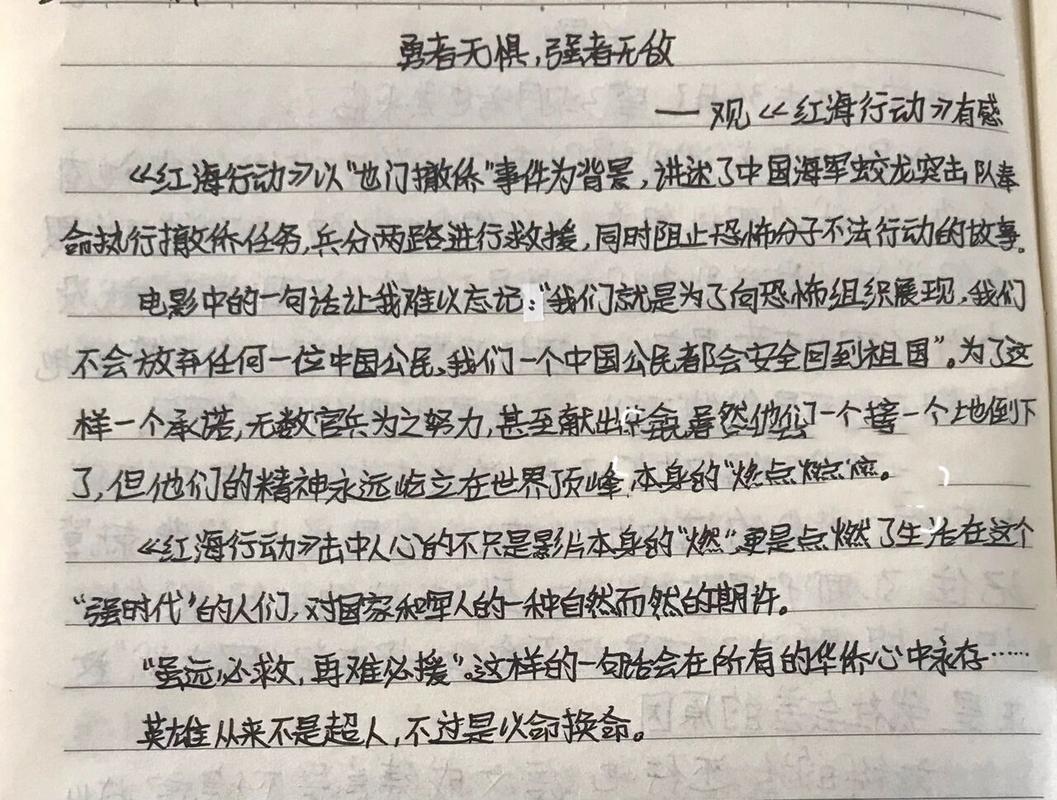 勇者无惧,强者无敌
—观《红海行动》有感
《红海行动》以"也门撤侨"事件为背景,讲述了中国海军蛟龙突击队奉
命执行撤侨任务,兵分两路进行救援,同时阻止恐怖分子不法行动的故事。
电影中的一句话让我难以忘记:"我们就是为了向恐怖组织展现,我们
不会放弃任何一位中国公民,我们一个中国公民都会安全回到祖国"。为了这
样一个承诺,无数官兵为之努力,甚至献出生命,虽然他们一个接一个地倒下
了,但他们的精神永远屹立在世界顶峰,本身的"燃点燃
《红海行动》击中人心的不只是影片本身的"燃",更是点燃了生活在这个
"强时代"的人们,对国家和军人的一种自然而然的期许。
"虽远必救,再难必援"。这样的一句话会在所有的华侨心中永存……
英雄从来不是超人,不过是以命换命。